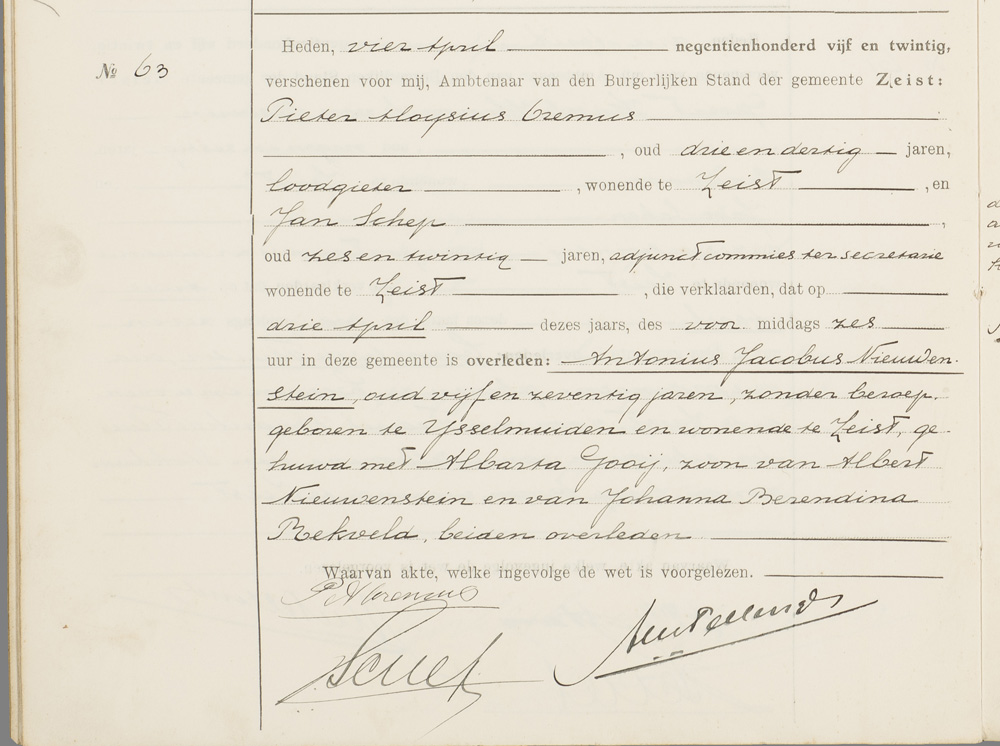 Heden, vier April negentienhonderd vijf en twintig,
№ 63
verschenen voor mij, Ambtenaar van den Burgerlijken Stand der gemeente Zeist:
Pieter Aloysius Cremus
, oud drie en dertig jaren,
loodgieter , wonende te Zeist , en
Jan Schep ,
oud zes en twintig jaren, adjunct commies ter secretarie
wonende te Zeist , die verklaarden, dat op
drie April dezes jaars, des voor middags zes
uur in deze gemeente is overleden: Antonius Jacobus Nieuwen-
stein, oud vijf en zeventig jaren, zonder beroep,
geboren te Ysselmuiden en wonende te Zeist, ge-
huwd met Albarta Gooij, zoon van Albert
Nieuwenstein en van Johanna Berendina
Rekveld, beiden overleden
Waarvan akte, welke ingevolge de wet is voorgelezen.